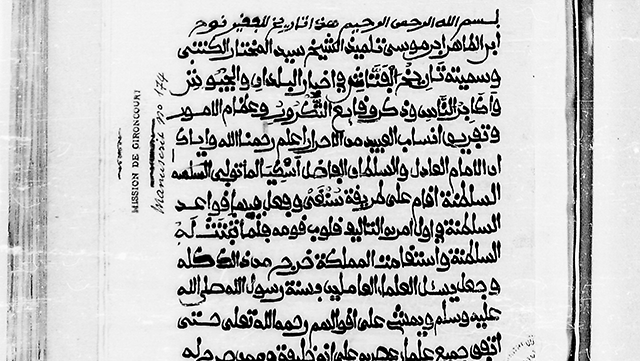 بسم الله الرحمن الرحيم هذا تاريخ للفقير نوح
ابن الطاهر ابن موسى تلميذ الشيخ سيد المختار الكنتي
وسميته تاريخ الفتاش في اخبار البلدان والجيوش
واكابر الناس وذكر وقايع التكرور وعظام الامور
وتفريق انساب العبيد من الاحرار اعلم رحمنا الله واياك
ان الامام العادل والسلطان الفاضل اسكيا لما تولى السلطنة
السلطنة اقام على طريقة سنفي وجعل فيها قواعد
السلطنة واول امره التاليف قلوب قومه فلما ثبتت له
السلطنة واستقامت المملكة خرج من ذلك كله
وجعل يسئل العلماء العاملين بسنة رسول الله صلى الله
عليه وسلم ويمشي على اقوالهم رحمه الله تعلى حتى
اتفق جميع علماء عصره على انه خليفة
MISSION DE GIRONCOURT
Manuscrit no 174